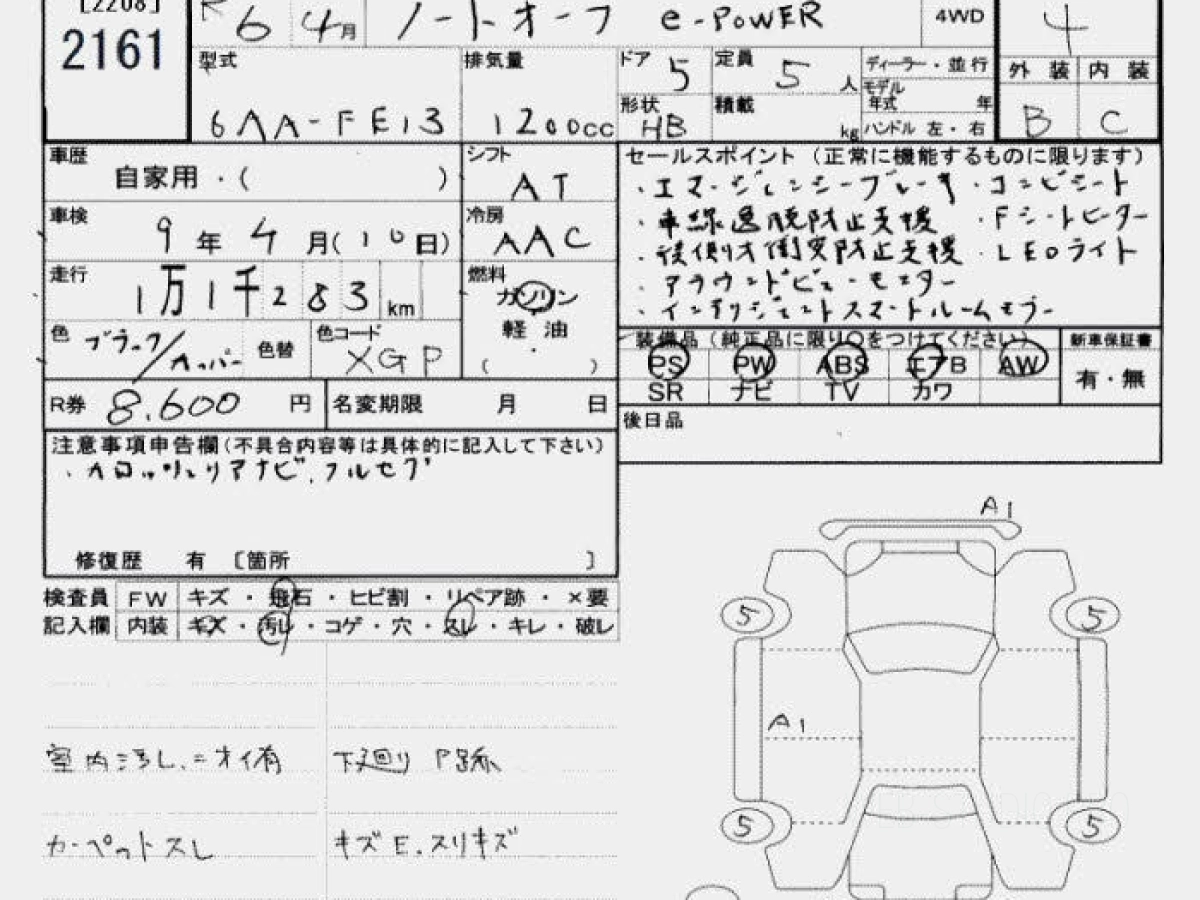 [2208]
2161
R 6 4月 ノートオーラ e-POWER 4WD 4
型式 6AA-FE13
排気量 1200cc
ドア 5 定員 5人
形状 HB 積載 kg
ディーラー・並行
モデル年式 年
ハンドル 左・右
外装 内装
B C
車歴 自家用・( )
シフト AT
車検 9年4月(10日)
冷房 AAC
走行 1万1千283km
燃料 ガソリン
軽油
( )
色 ブラック/カッパー 色替
色コード XGP
R券 8,600円 名変期限 月 日
セールスポイント (正常に機能するものに限ります)
・エマージェンシーブレーキ ・コンビシート
・車線逸脱防止支援 ・Fシートヒーター
・後側方衝突防止支援 ・LEDライト
・アラウンドビューモニター
・インテリジェントスマートルームミラー
装備品 (純正品に限り○をつけてください) 新車保証書
PS PW ABS エアB AW 有・無
SR ナビ TV カワ
後日品
注意事項申告欄(不具合内容等は具体的に記入して下さい)
・カロッツェリアナビ,フルセグ
修復歴 有 [箇所 ]
検査員 FW キズ・飛石・ヒビ割・リペア跡・×要
記入欄 内装 キズ・汚レ・コゲ・穴・スレ・キレ・破レ
室内汚レ.ニオイ有
下廻り P跡
カーペットスレ
キズE.スリキズ
A1
5 5
A1
5 5